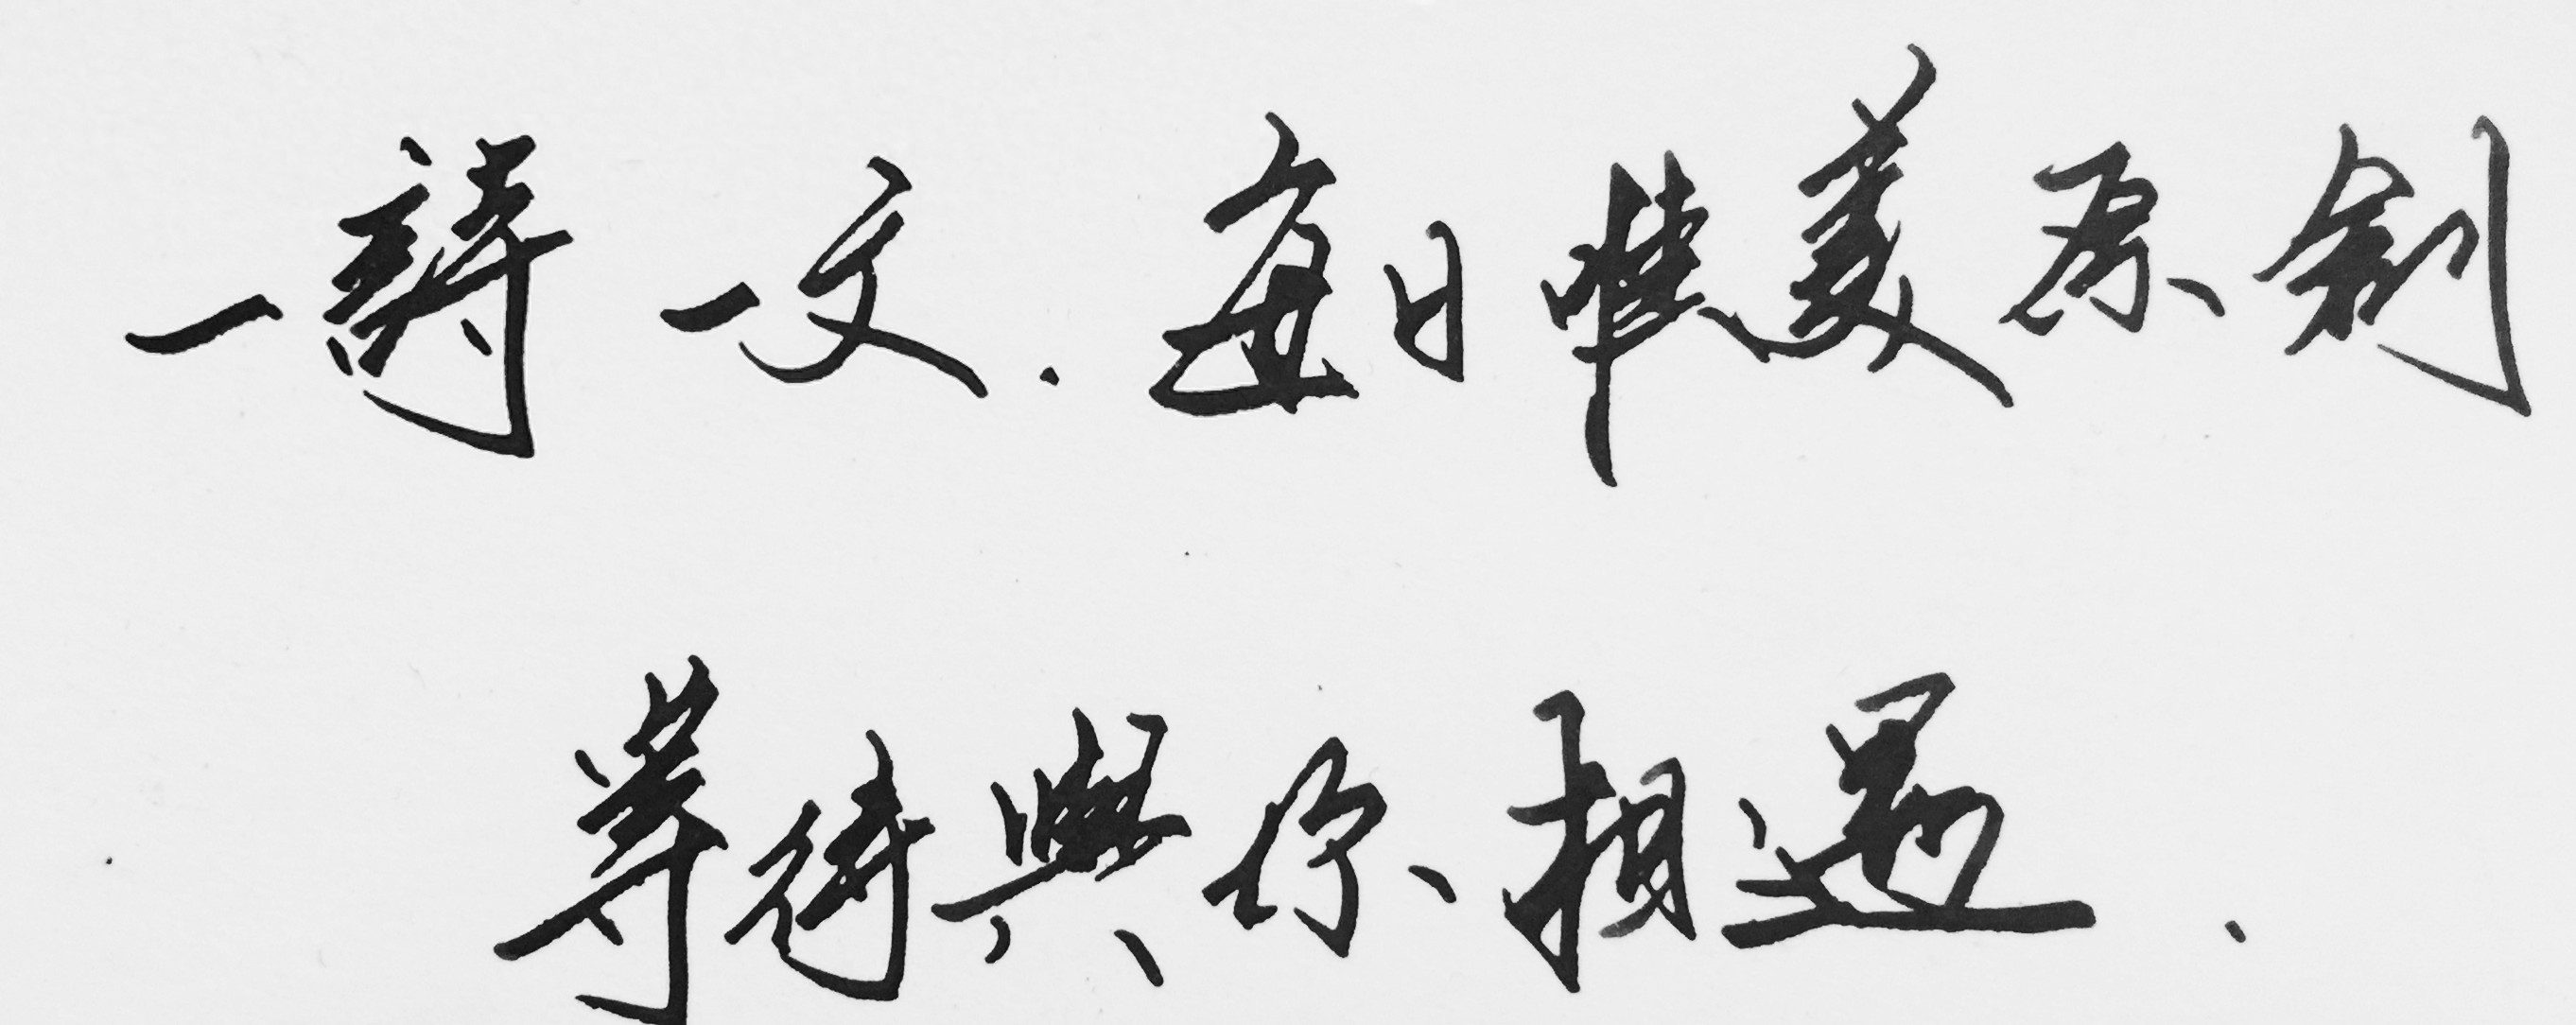 一詩一文．每日唯美原創
等待與你相遇．